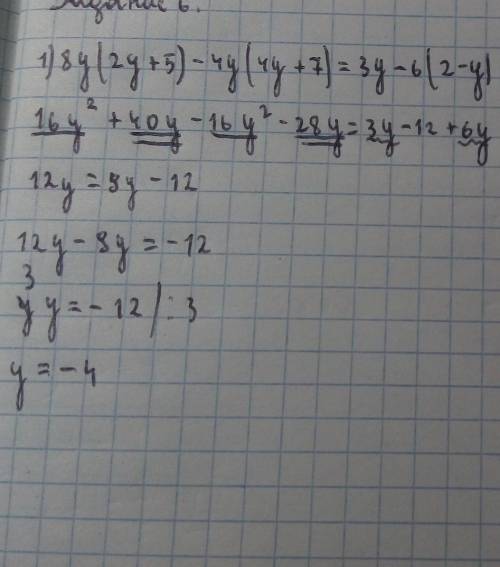 Задание 6.
1) 8y(2y+5)-4y(4y+7)=3y-6(2-y)
16y² +40y-16y²-28y=3y-12+6y
12y=9y-12
12y-9y=-12
3
y y=-12/:3
y=-4